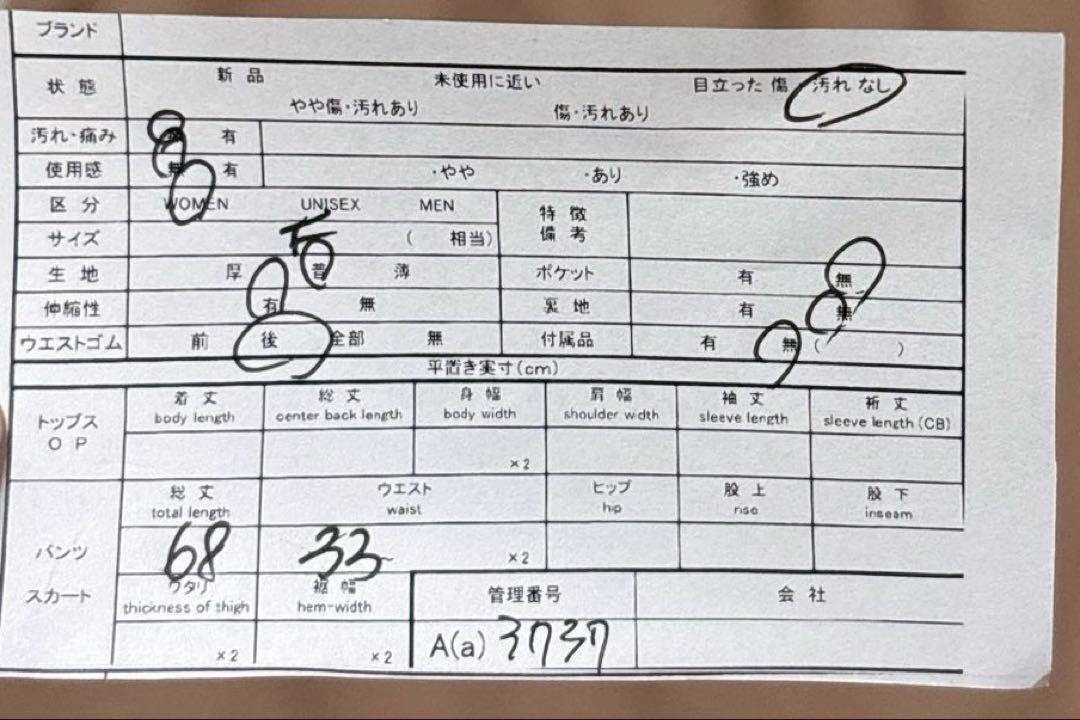 ブランド
状態 新品 未使用に近い 目立った傷 汚れなし
やや傷・汚れあり 傷・汚れあり
汚れ・痛み 有
使用感 無 有 ・やや ・あり ・強め
区分 WOMEN UNISEX MEN 特徴
サイズ ( 相当) 備考
生地 厚 普 薄 ポケット 有 無
伸縮性 有 無 裏地 有 無
ウエストゴム 前 後 全部 無 付属品 有 無 ( )
平置き実寸(cm)
トップス 着丈 総丈 身幅 肩幅 袖丈 裄丈
OP body length center back length body width shoulder width sleeve length sleeve length (CB)
×2
総丈 ウエスト ヒップ 股上 股下
total length waist hip rise inseam
パンツ 68 33 ×2
スカート ワタリ 裾幅 管理番号 会社
thickness of thigh hem-width
×2 ×2 A(a) 3737